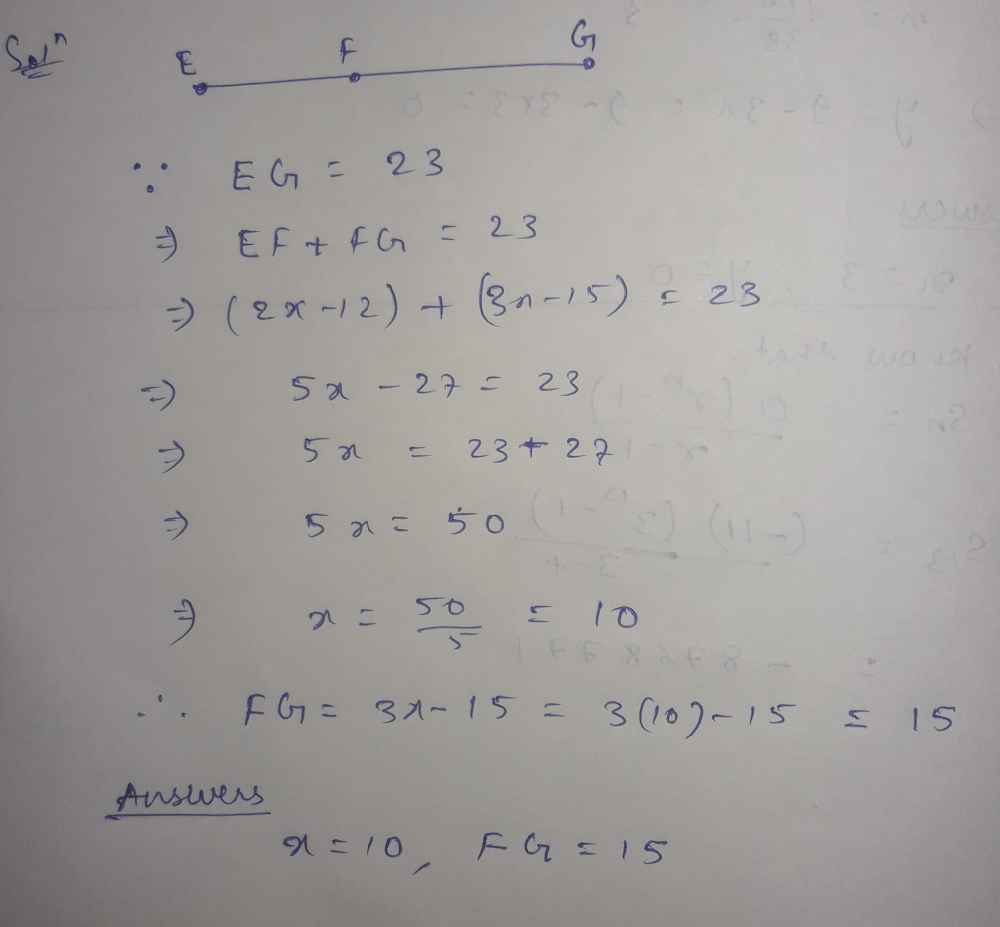 Solⁿ
E F G
∵ EG = 23
⇒ EF + FG = 23
⇒ (2x-12) + (3x-15) = 23
⇒ 5x - 27 = 23
⇒ 5x = 23 + 27
⇒ 5x = 50
⇒ x = 50/5 = 10
∴ FG = 3x - 15 = 3(10) - 15 = 15
Answers
x = 10, FG = 15